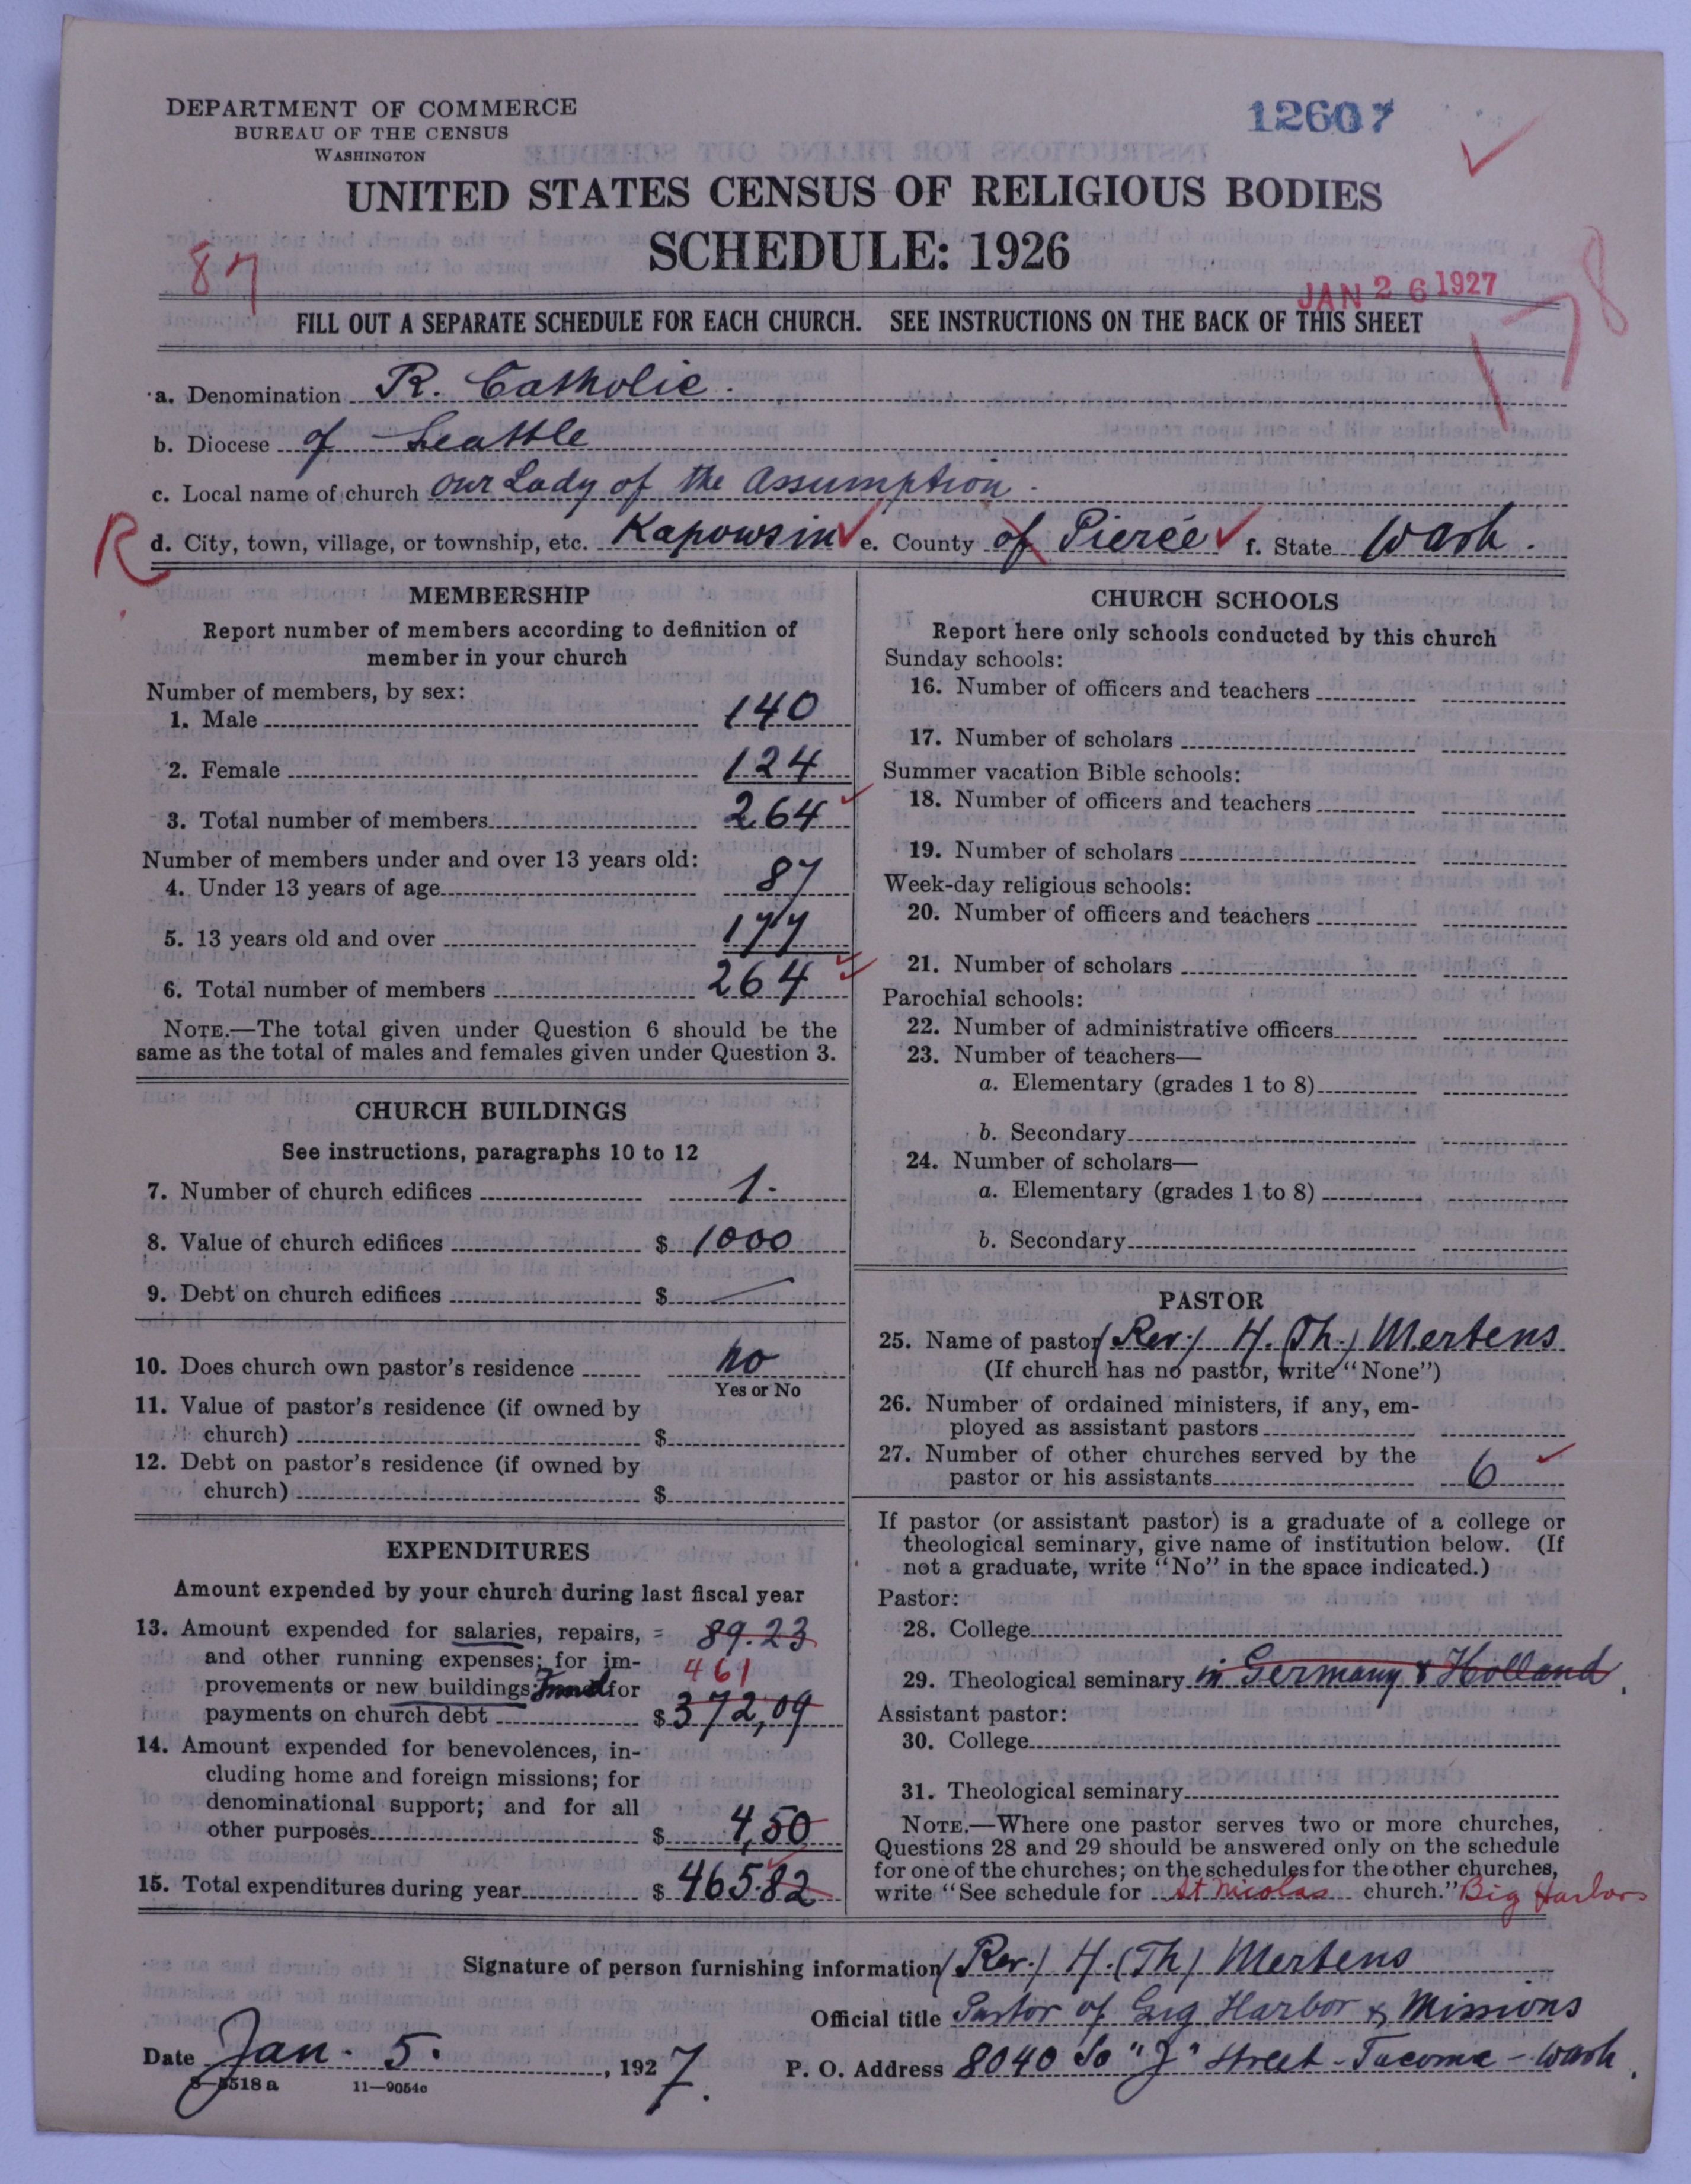 DEPARTMENT OF COMMERCE
BUREAU OF THE CENSUS
WASHINGTON
12607
UNITED STATES CENSUS OF RELIGIOUS BODIES
SCHEDULE: 1926
87
JAN 26 1927
178
FILL OUT A SEPARATE SCHEDULE FOR EACH CHURCH. SEE INSTRUCTIONS ON THE BACK OF THIS SHEET
a. Denomination R. Catholic.
b. Diocese of Seattle
c. Local name of church Our Lady of the Assumption.
R d. City, town, village, or township, etc. Kapowsin e. County of Pierce f. State Wash.
MEMBERSHIP
Report number of members according to definition of
member in your church
Number of members, by sex:
1. Male 140
2. Female 124
3. Total number of members 264
Number of members under and over 13 years old:
4. Under 13 years of age 87
5. 13 years old and over 177
6. Total number of members 264
NOTE.—The total given under Question 6 should be the
same as the total of males and females given under Question 3.
CHURCH BUILDINGS
See instructions, paragraphs 10 to 12
7. Number of church edifices 1.
8. Value of church edifices $ 1000
9. Debt on church edifices $ —
10. Does church own pastor's residence no
Yes or No
11. Value of pastor's residence (if owned by
church) $
12. Debt on pastor's residence (if owned by
church) $
EXPENDITURES
Amount expended by your church during last fiscal year
13. Amount expended for salaries, repairs, = 89.23
and other running expenses; for im- 461
provements or new buildings; Fund for
payments on church debt $ 372,09
14. Amount expended for benevolences, in-
cluding home and foreign missions; for
denominational support; and for all
other purposes $ 4,50
15. Total expenditures during year $ 465.82
CHURCH SCHOOLS
Report here only schools conducted by this church
Sunday schools:
16. Number of officers and teachers
17. Number of scholars
Summer vacation Bible schools:
18. Number of officers and teachers
19. Number of scholars
Week-day religious schools:
20. Number of officers and teachers
21. Number of scholars
Parochial schools:
22. Number of administrative officers
23. Number of teachers—
a. Elementary (grades 1 to 8)
b. Secondary
24. Number of scholars—
a. Elementary (grades 1 to 8)
b. Secondary
PASTOR
25. Name of pastor (Rev.) H. (Th.) Mertens
(If church has no pastor, write "None")
26. Number of ordained ministers, if any, em-
ployed as assistant pastors
27. Number of other churches served by the
pastor or his assistants 6
If pastor (or assistant pastor) is a graduate of a college or
theological seminary, give name of institution below. (If
not a graduate, write "No" in the space indicated.)
Pastor:
28. College
29. Theological seminary in Germany & Holland.
Assistant pastor:
30. College
31. Theological seminary
NOTE.—Where one pastor serves two or more churches,
Questions 28 and 29 should be answered only on the schedule
for one of the churches; on the schedules for the other churches,
write "See schedule for St Nicolas church." Big Harbor
Signature of person furnishing information (Rev.) H. (Th) Mertens
Official title Pastor of Gig Harbor & Missions
Date Jan. 5. , 1927. P. O. Address 8040 So "J" Street - Tacoma - Wash.
8—5518 a 11—9054c